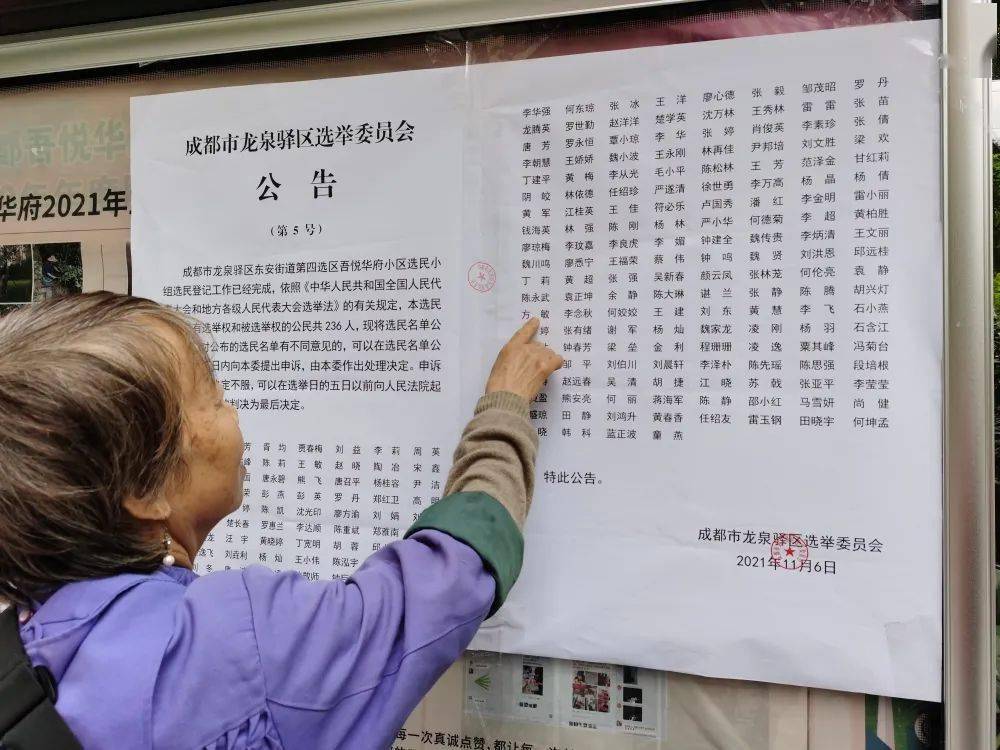 成都市龙泉驿区选举委员会
公 告
（第 5 号）
成都市龙泉驿区东安街道第四选区吾悦华府小区选民小
组选民登记工作已经完成，依照《中华人民共和国全国人民代
大会和地方各级人民代表大会选举法》的有关规定，本选民
有选举权和被选举权的公民共 236 人，现将选民名单公
对公布的选民名单有不同意见的，可以在选民名单公
日内向本委提出申诉，由本委作出处理决定。申诉
定不服，可以在选举日的五日以前向人民法院起
判决为最后决定。
芳 胥 均 贾春梅 刘 益 李 莉 周 英
峰 陈 莉 王 敏 赵 晓 陶 冶 宋 鑫
国 唐永碧 熊 飞 唐召平 杨桂容 尹 洁
荣 彭 燕 彭 英 罗 丹 郑红卫 高 明
婷 陈 凯 沈光印 廖方渝 刘 娟
楚长春 罗惠兰 李达顺 陈重斌 郑雅南
龙 汪 宇 黄晓婷 丁宽明 胡 蓉
逸飞 刘垚利 杨 灿 王小伟 陈泓宇
李华强 何东琼 张 冰 王 洋 廖心德 张 毅 邹茂昭 罗 丹
龙腾英 罗世勤 赵洋洋 楚学英 沈万林 王秀林 雷 雷 张 苗
唐 芳 罗永恒 覃小琼 李 华 张 婷 肖俊英 李素珍 张 倩
李朝慧 王娇娇 魏小波 王永刚 林再佳 尹邦培 刘文胜 梁 欢
丁建平 黄 梅 李从光 毛小平 陈松林 王 芳 范泽金 甘红莉
阴 皎 林依德 任绍珍 严遂清 徐世勇 李万高 杨 晶 杨 倩
黄 军 江桂英 王 佳 符必乐 卢国秀 潘 红 李金明 雷小丽
钱海英 林 强 陈 刚 杨 林 严小华 何德菊 李 超 黄柏胜
廖琼梅 李玟嘉 李良虎 李 媚 钟建全 魏传贵 李炳清 王文丽
魏川鸣 廖悉宁 王福荣 蔡 伟 钟 鸣 魏 贤 刘洪恩 邱远桂
丁 莉 黄 超 张 强 吴新春 颜云凤 张林茏 何伦亮 袁 静
陈永武 袁正坤 余 静 陈大琳 谌 兰 张 静 陈 腾 胡兴灯
方 敏 李念秋 何姣姣 王 建 刘 东 黄 慧 李 飞 石小燕
婷 张有绪 谢 军 杨 灿 魏家龙 凌 刚 杨 羽 石含江
钟春芳 梁 垒 金 利 程珊珊 凌 逸 粟其峰 冯菊台
邹 平 刘伯川 刘晨轩 李泽朴 陈先瑶 陈思强 段培根
赵远春 吴 清 胡 捷 江 晓 苏 戟 张亚平 李莹莹
盈 熊安亮 何 丽 蒋海军 陈 静 邵小红 马雪妍 尚 健
琼 田 静 刘鸿升 黄春香 任绍友 雷玉钢 田晓宇 何坤孟
晓 韩 科 蓝正波 童 燕
特此公告。
成都市龙泉驿区选举委员会
2021年11月6日
吾悦华
华府2021年
一次真诚点赞，都让每一次